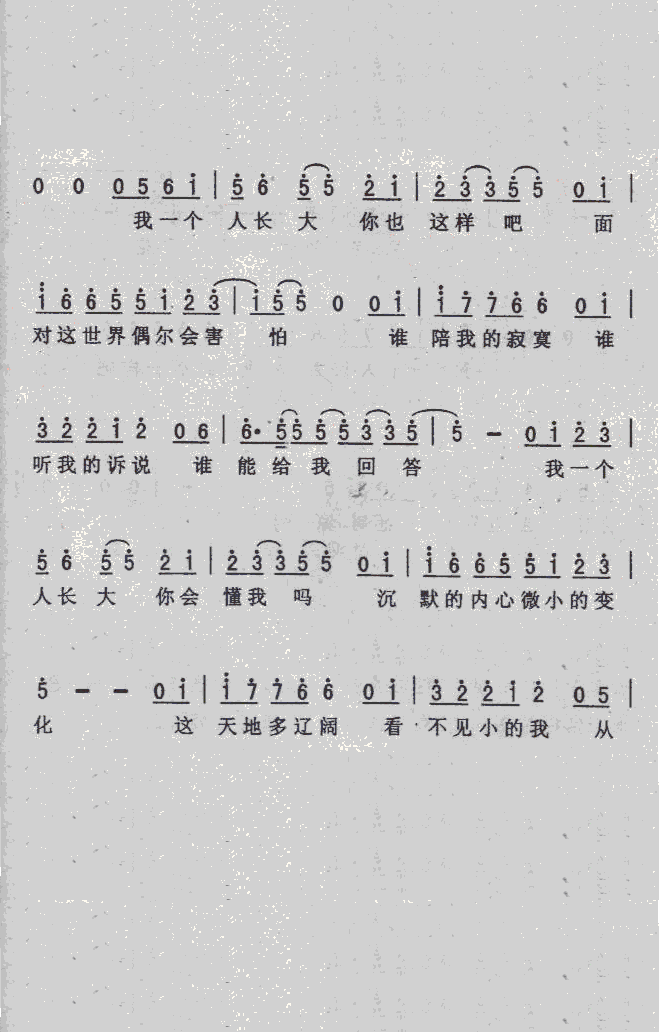 0 0 0 5 6 i | 5 6 5 5 2 i | 2 3 3 5 5 0 i |
我一个 人长 大 你也 这样 吧 面
i 6 6 5 5 i 2 3 | i 5 5 0 0 i | i 7 7 6 6 0 i |
对这世界偶尔会害 怕 谁 陪我的寂寞 谁
3 2 2 i 2 0 6 | 6· 5 5 5 5 3 3 5 | 5 - 0 i 2 3 |
听我的诉说 谁 能给 我 回 答 我一个
5 6 5 5 2 i | 2 3 3 5 5 0 i | i 6 6 5 5 i 2 3 |
人长 大 你会 懂我 吗 沉 默的内心微小的变
5 - - 0 i | i 7 7 6 6 0 i | 3 2 2 i 2 0 5 |
化 这 天地多辽阔 看 不见小的我 从